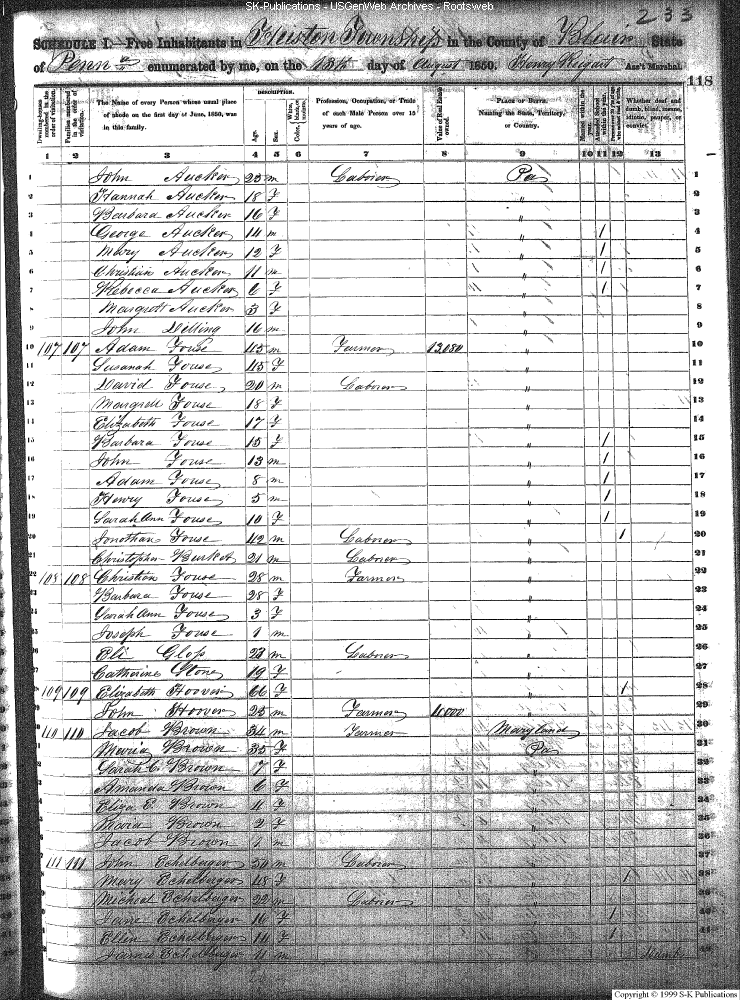 SK-Publications - USGenWeb Archives - Rootsweb
233
SCHEDULE I.—Free Inhabitants in Newton Township in the County of Blair State
of Penn a enumerated by me, on the 13th day of August 1850. Henry Ass't Marshal.
118
DESCRIPTION.
Dwelling-houses numbered in the order of visitation.
Families numbered in the order of visitation.
The Name of every Person whose usual place of abode on the first day of June, 1850, was in this family.
Age.
Sex.
White, Color, black, or mulatto.
Profession, Occupation, or Trade of each Male Person over 15 years of age.
Value of Real Estate owned.
PLACE OF BIRTH. Naming the State, Territory, or Country.
Married within the year.
Attended School within the year.
Whether deaf and dumb, blind, insane, idiotic, pauper, or convict.
1 2 3 4 5 6 7 8 9 10 11 12 13
1 John Aucker 25 m Laborer Pa 1
2 Hannah Aucker 18 F " 2
3 Barbara Aucker 16 F " 3
4 George Aucker 14 m " / 4
5 Mary Aucker 12 F " / 5
6 Christian Aucker 11 m " / 6
7 Rebecca Aucker 6 F " / 7
8 Margrett Aucker 3 F " 8
9 John 16 m " 9
10 107 107 Adam Fouse 45 m Farmer 13,080 " 10
11 Susanah Fouse 45 F " 11
12 David Fouse 20 m Laborer " 12
13 Margrett Fouse 18 F " 13
14 Elizabeth Fouse 17 F " 14
15 Barbara Fouse 15 F " / 15
16 John Fouse 13 m " / 16
17 Adam Fouse 8 m " / 17
18 Henry Fouse 5 m " / 18
19 Sarah Ann Fouse 10 F " / 19
20 Jonathan Fouse 42 m Laborer " / 20
21 Christopher Burket 21 m Laborer " 21
22 108 108 Christian Fouse 28 m Farmer " 22
Barbara Fouse 28 F " 23
Sarah Ann Fouse 3 F " 24
Joseph Fouse 1 m " 25
Eli Gloss 23 m Laborer " 26
Catherine Stone 19 F " 27
109 109 Elizabeth Hoover 66 F " / 28
John Hoover 25 m Farmer 4,000 " 29
110 110 Jacob Brown 34 m Farmer Maryland 30
Maria Brown 35 F Pa 31
Sarah C Brown 7 F " 32
Amanda Brown 6 F " 33
Eliza E Brown 4 F " 34
Maria Brown 2 F " 35
Jacob Brown 1 m " 36
111 111 John Echelberger 50 m Laborer " 37
Mary Echelberger 48 F " / 38
Micheal Echelberger 22 m Laborer " 39
Jane Echelberger 16 F " / 40
Ellen Echelberger 14 F " / 41
James Echelberger 11 m " Dumb 42
Copyright © 1999 S-K Publications